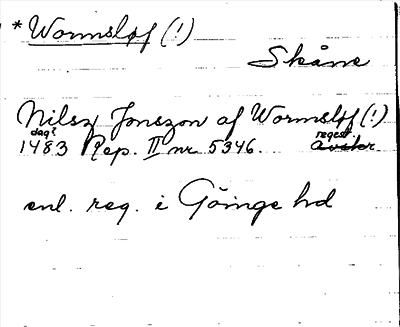 * Wormsløf (!)
Skåne
Nilsz Jonszon af Wormsløf (!)
dag? regest.
1483 Rep. II nr 5346. avskr
enl. reg. i Göinge hd